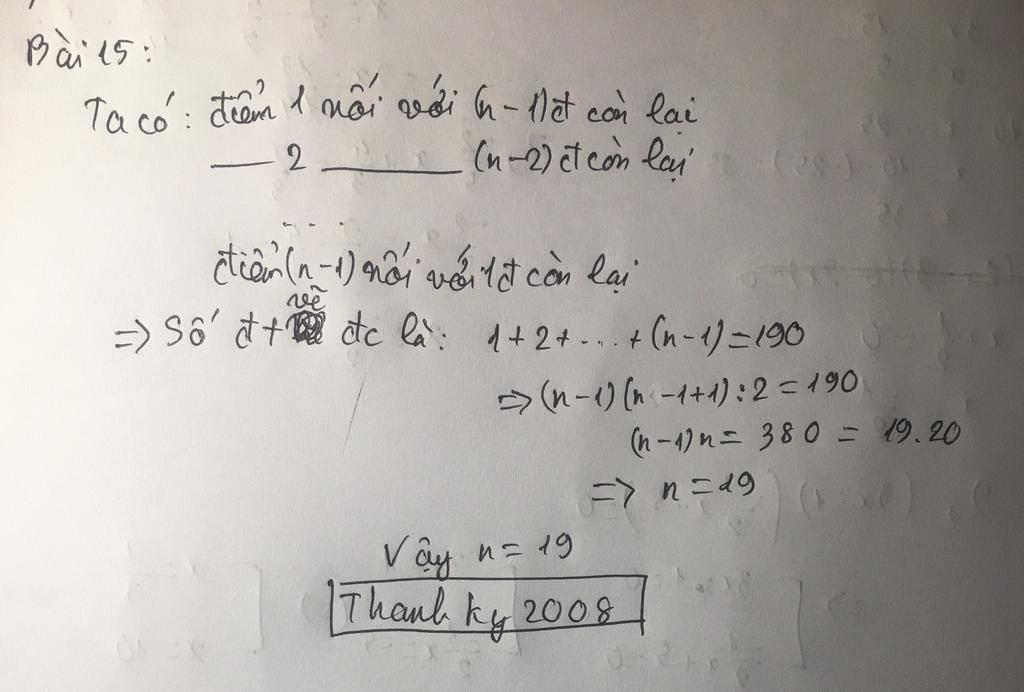 Bài 15:
Ta có: điểm 1 nối với (n-1)đ còn lại
—— 2 ———— (n-2)đ còn lại
...
điểm (n-1) nối với 1đ còn lại
vẽ
=> Số đt đc là: 1+2+...+(n-1)=190
=> (n-1)(n-1+1):2=190
(n-1)n = 380 = 19.20
=> n = 19
Vậy n = 19
Thanh ky 2008